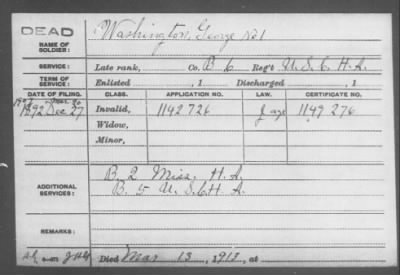 DEAD
NAME OF SOLDIER: Washington, George No 1
SERVICE: Late rank, Co. B 6 Reg't U.S.C.H.A.
TERM OF SERVICE: Enlisted , 1 Discharged , 1
DATE OF FILING. CLASS. APPLICATION NO. LAW. CERTIFICATE NO.
1892 Dec 27 Invalid, 1142726 1149276
Widow,
Minor,
ADDITIONAL SERVICES: B. 2 Miss. H. A.
B. 5 U. S. C. H. A.
REMARKS:
Died Mar 13, 1913, at